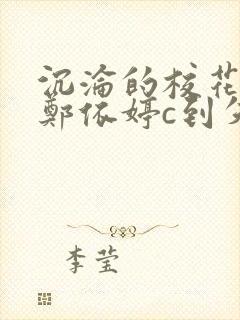 沉淪的校花
鄭依婷c到
李莹